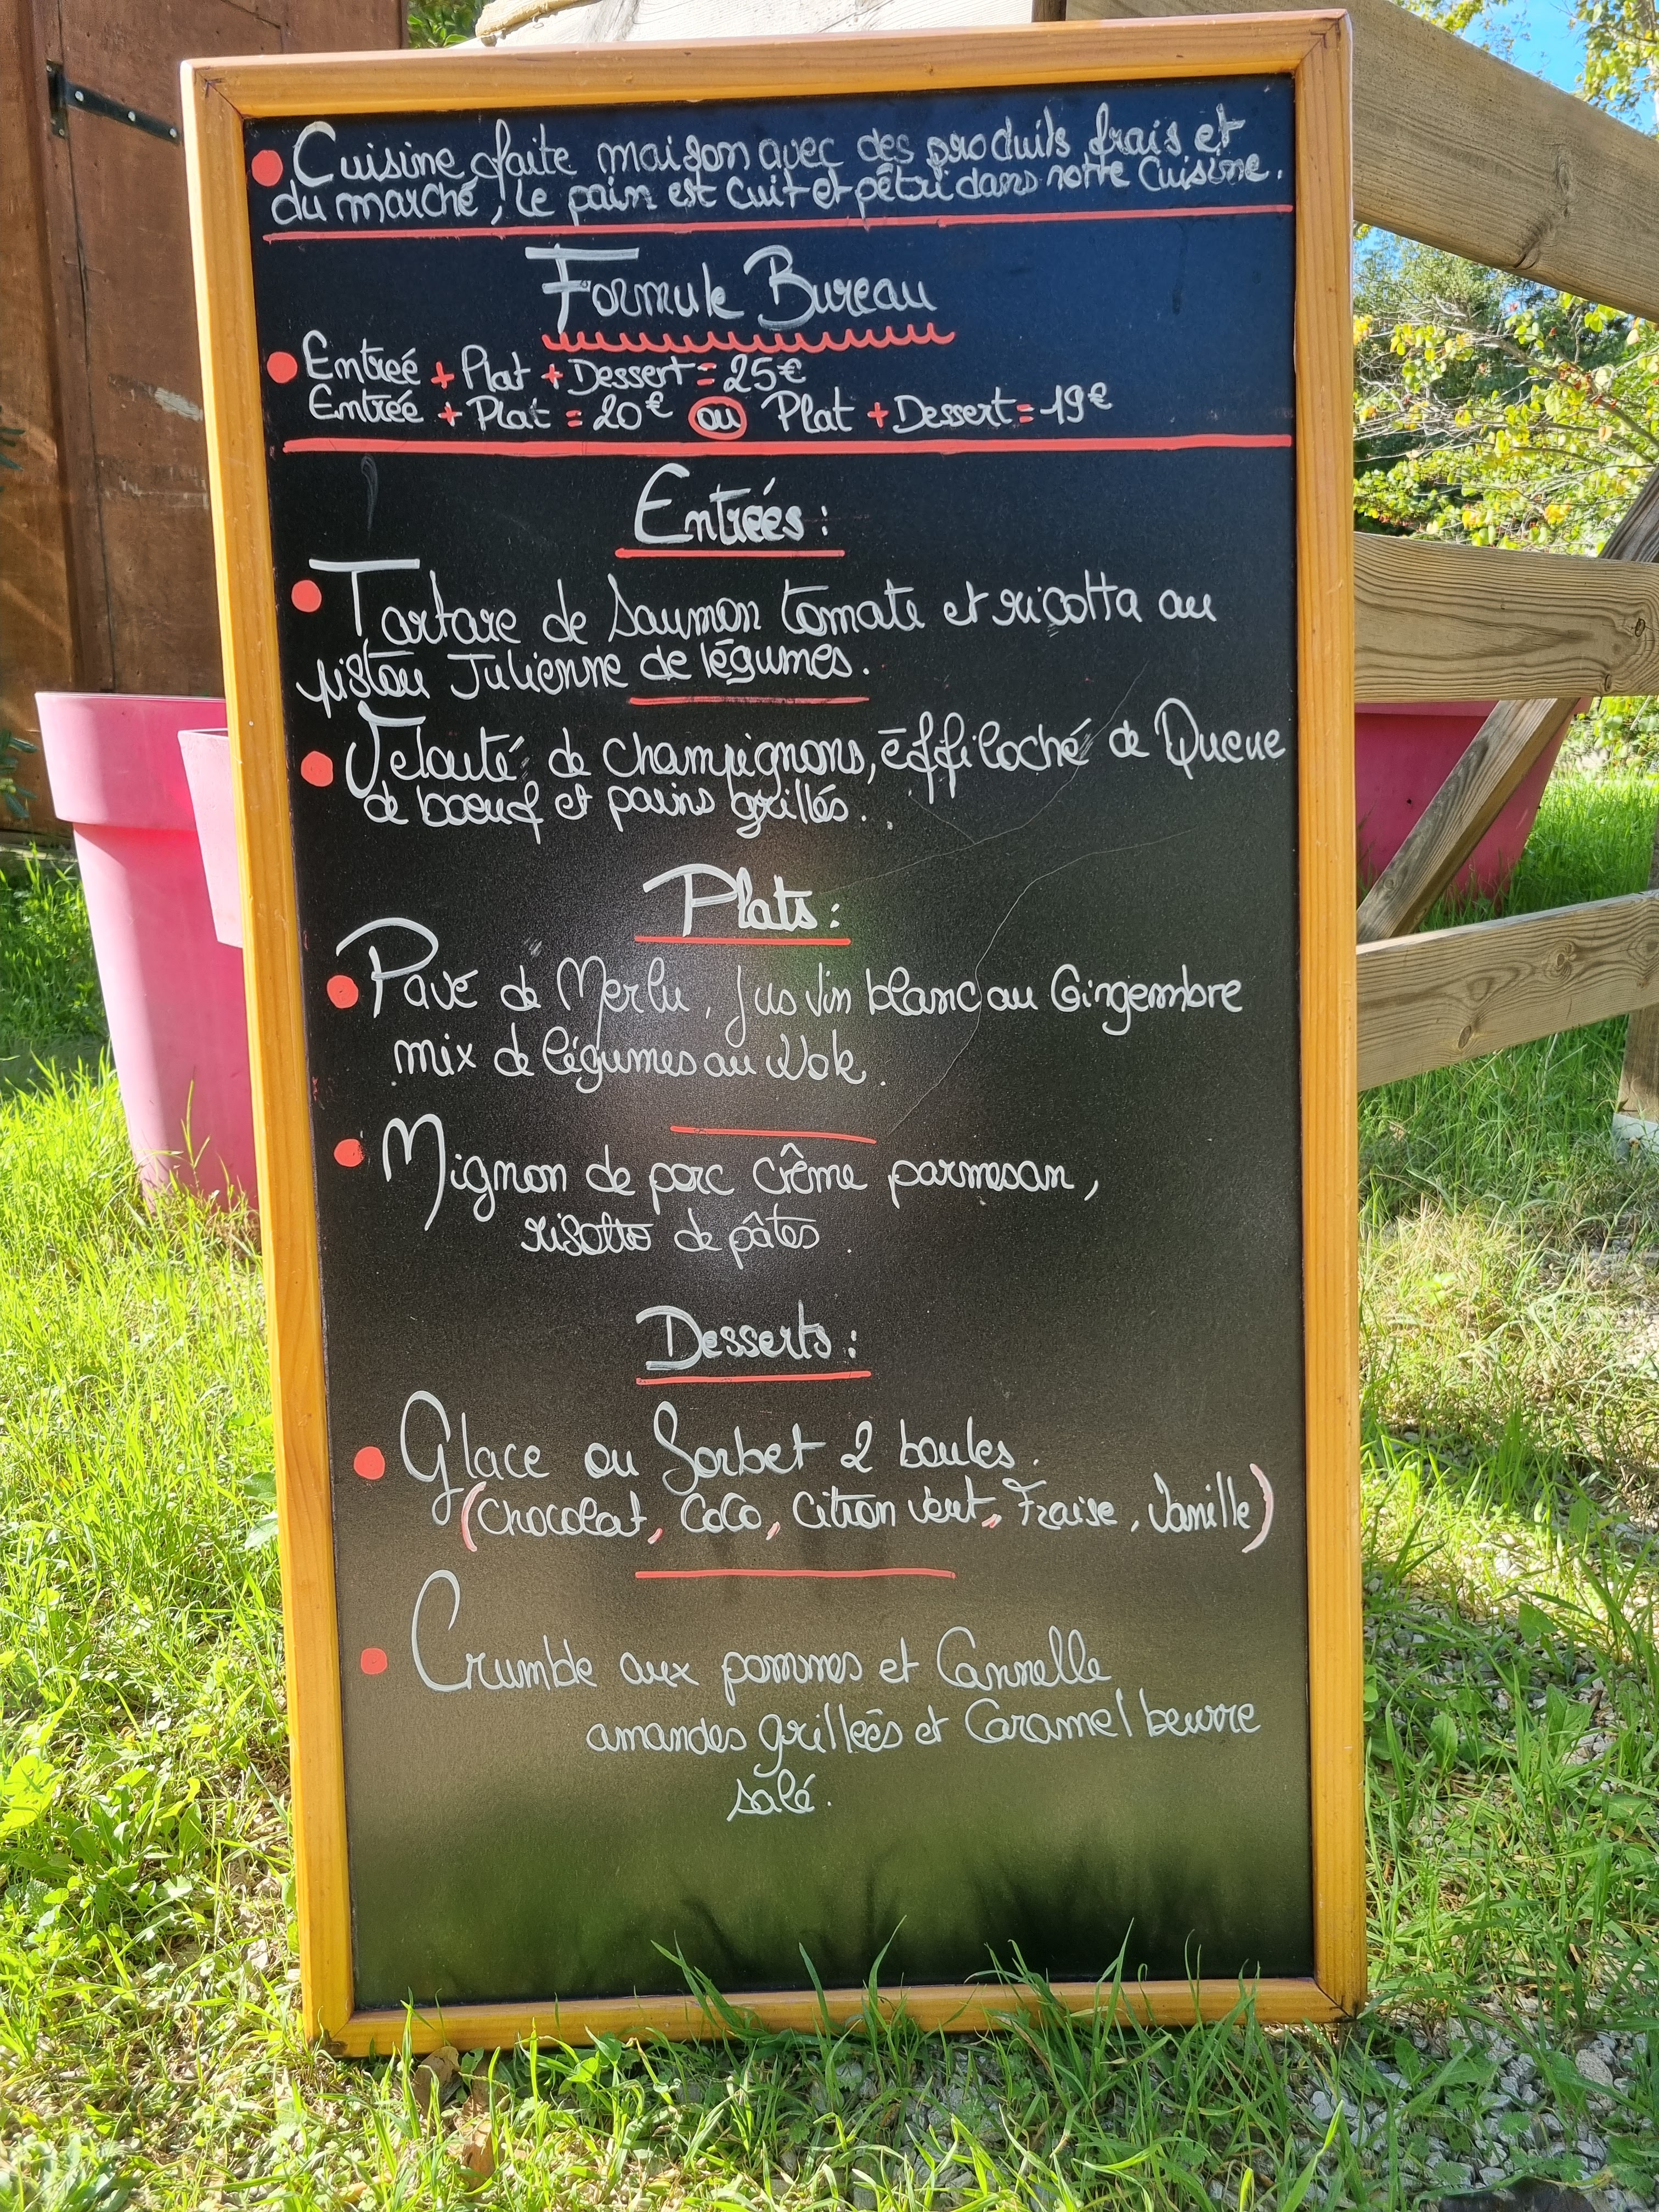 Cuisine faite maison avec des produits frais et
du marché, le pain est cuit et pétri dans notre Cuisine.
Formule Bureau
Entrée + Plat + Dessert = 25€
Entrée + Plat = 20€ ou Plat + Dessert = 19€
Entrées :
Tartare de Saumon tomate et ricotta au
pistou Julienne de légumes.
Velouté de champignons, éffiloché de Queue
de bœuf et pains grillés.
Plats :
Pavé de Merlu, jus vin blanc au Gingembre
mix de légumes au Wok.
Mignon de porc crême parmesan,
risotto de pâtes.
Desserts :
Glace ou Sorbet 2 boules.
(Chocolat, Coco, Citron vert, Fraise, Vanille)
Crumble aux pommes et Cannelle
amandes grillées et Caramel beurre
salé.